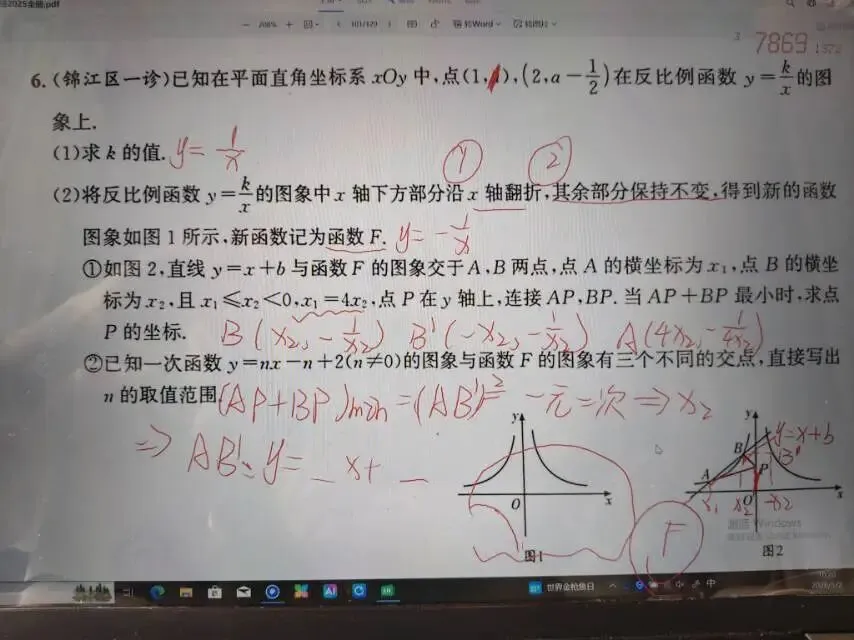 2025全册.pdf
208%
101/129
转Word
3 7869 1572
6. (锦江区一诊)已知在平面直角坐标系 xOy 中,点(1, ),(2,a-1/2)在反比例函数 y=k/x 的图
象上.
(1)求 k 的值. y=1/x ① ②
(2)将反比例函数 y=k/x 的图象中 x 轴下方部分沿 x 轴翻折,其余部分保持不变,得到新的函数
图象如图 1 所示,新函数记为函数 F. y=-1/x
①如图 2,直线 y=x+b 与函数 F 的图象交于 A,B 两点,点 A 的横坐标为 x₁,点 B 的横坐
标为 x₂,且 x₁≤x₂<0,x₁=4x₂,点 P 在 y 轴上,连接 AP,BP. 当 AP+BP 最小时,求点
P 的坐标. B(x₂,-1/x₂) B'(-x₂,-1/x₂) A(4x₂,-1/4x₂)
②已知一次函数 y=nx-n+2(n≠0)的图象与函数 F 的图象有三个不同的交点,直接写出
n 的取值范围. (AP+BP)min=(AB')² 一元二次⇒x₂
⇒AB':y=_x+_
y
O
x
图1
F
y
y=x+b
B
B'
A
P
x₁
x₂
O
-x₂
x
图2
激活 Windows
世界金枪鱼日
中